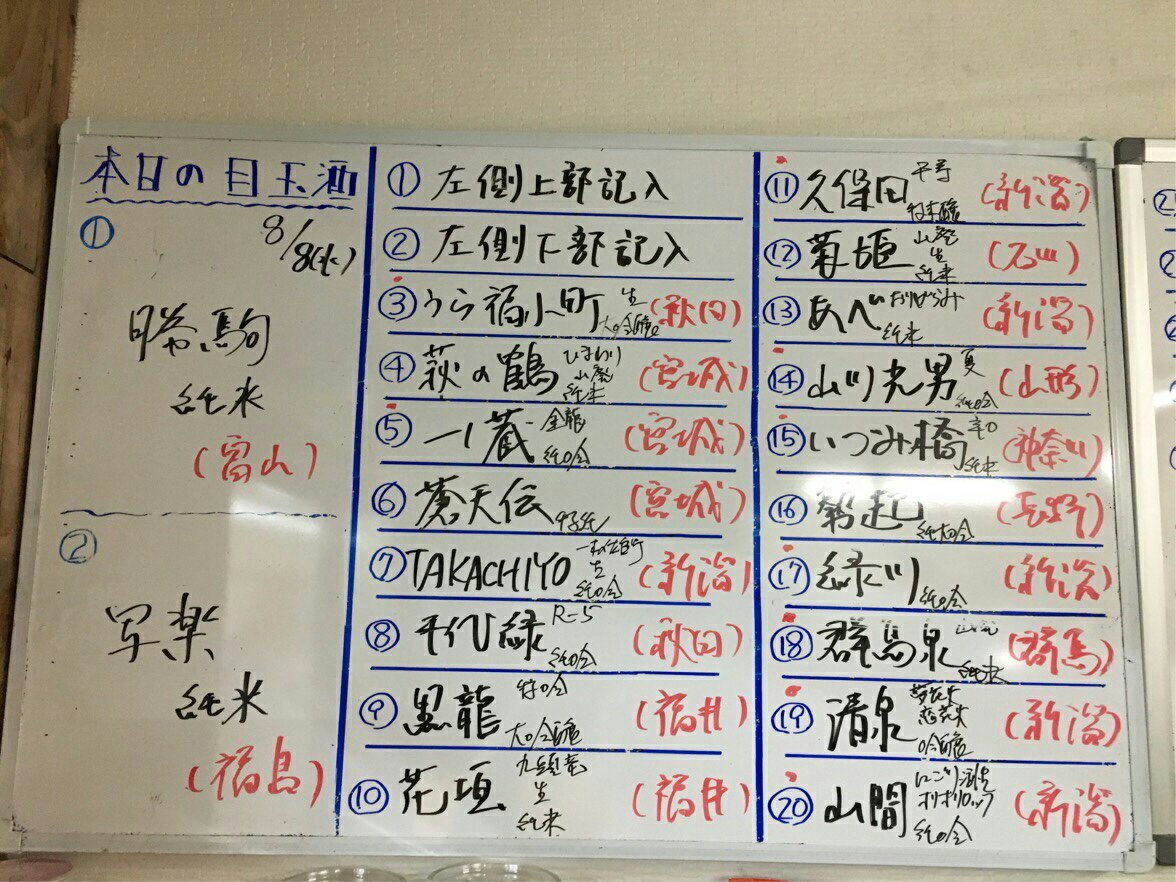 本日の目玉酒
8/8(水)
①
勝駒
純米
(富山)
②
写楽
純米
(福島)
① 左側上部記入
② 左側下部記入
③ うら福小町 生 (秋田)
④ 萩の鶴 ひまわり 山廃 純米 (宮城)
⑤ 一ノ蔵 金龍 純吟 (宮城)
⑥ 蒼天伝 特純 (宮城)
⑦ TAKACHIYO 生 純吟 (新潟)
⑧ 千代緑 R-5 純吟 (秋田)
⑨ 黒龍 特吟 大吟醸 (福井)
⑩ 花垣 九頭竜 生 純米 (福井)
⑪ 久保田 千寿 (新潟)
⑫ 菊姫 山廃 生 純米 (石川)
⑬ あべ おりがらみ 純米 (新潟)
⑭ 山川光男 夏 純吟 (山形)
⑮ いづみ橋 辛口 純米 (神奈川)
⑯ 勢起 純大吟 (長野)
⑰ 緑川 純吟 (新潟)
⑱ 群馬泉 山廃 純米 (群馬)
⑲ 清泉 吟醸 (新潟)
⑳ 山間 にごり 純吟 (新潟)